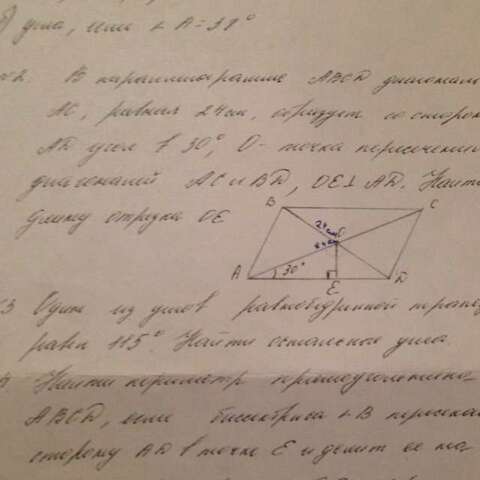 б) угла, если ∠ A = 37°
№2. В параллелограмме ABCD диагональ
AC, равная 24 см, образует со сторон
AD угол в 30°, O - точка пересечения
диагоналей AC и BD, OE ⊥ AD. Найти
длину отрезка OE
B C
24 см
A 30° E D
3 Один из углов равнобедренной трапец
равен 115°. Найти остальные углы.
Найти периметр прямоугольника
ABCD, если биссектриса ∠ B пересека
сторону AD в точке E и делит её на